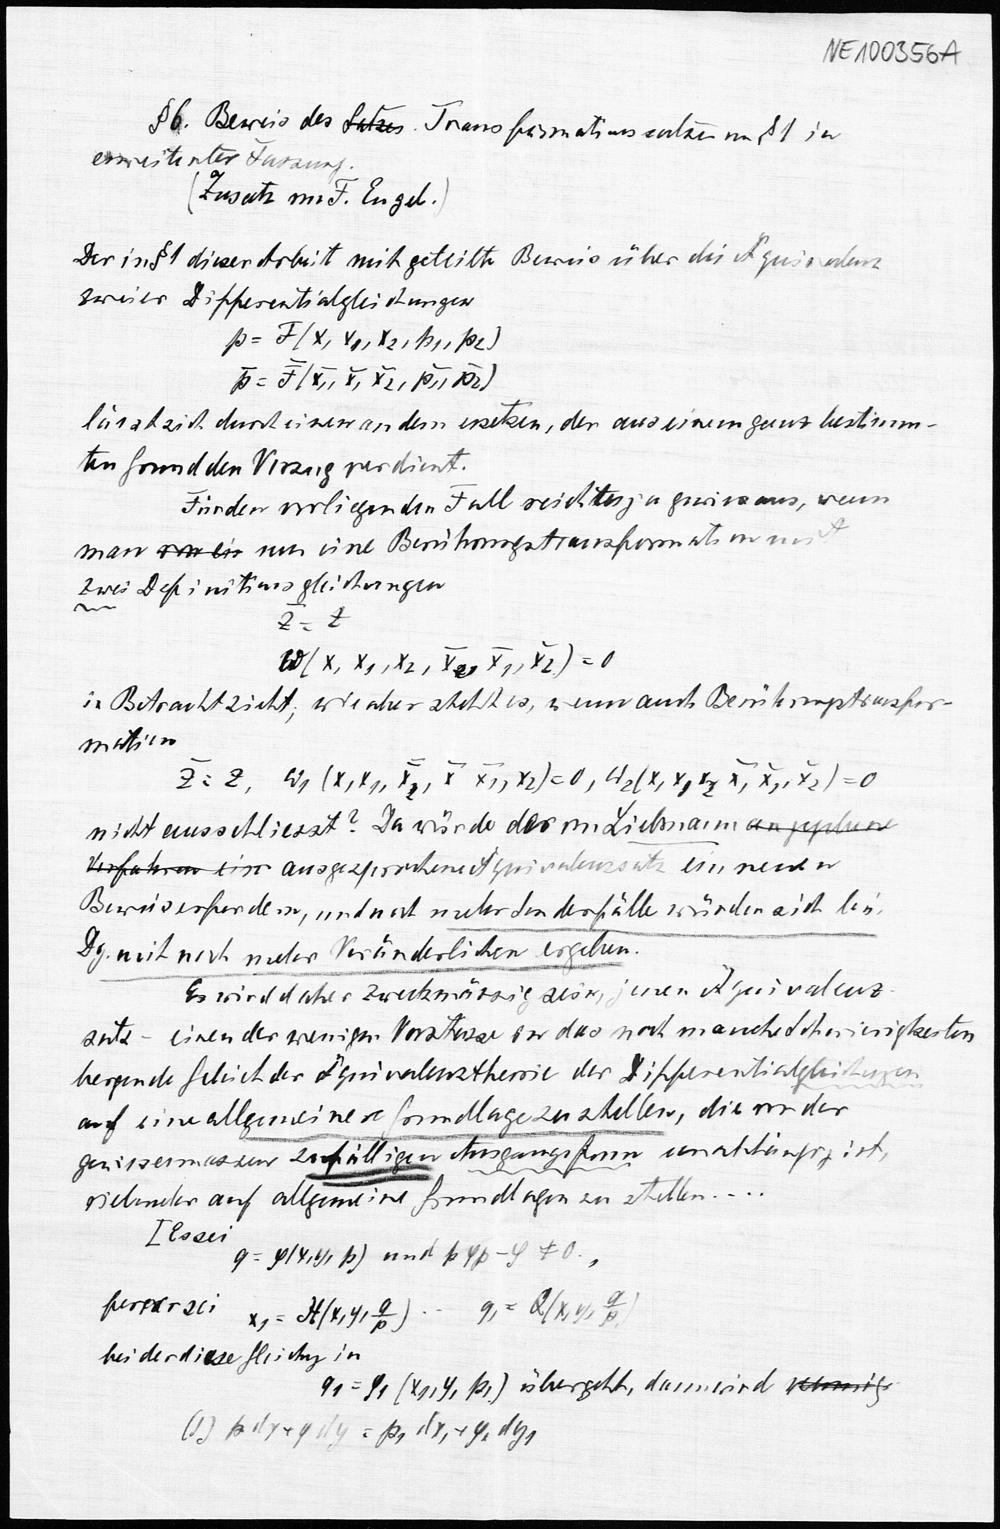 NE100356A
§6. Beweis des Satzes Transformationssatzes von §1 in
erweiterter Fassung.
(Zusatz von F. Engel.)
Der in §1 dieser Arbeit mitgeteilte Beweis über die Äquivalenz
zweier Differentialgleichungen
p = F(x, x1, x2, p1, p2)
p̄ = F̄(x̄1, x̄, x̄2, p̄1, p̄2)
lässt sich durch einen andern ersetzen, der aus einem ganz bestimm-
ten Grund den Vorzug verdient.
Für den vorliegenden Fall reicht es ja gewiss aus, wenn
man nur eine Berührungstransformation mit
zwei Definitionsgleichungen
z̄ = z
ω(x, x1, x2, x̄, x̄1, x̄2) = 0
in Betracht zieht; wie aber steht es, wenn auch Berührungstransfor-
mation
z̄ = z, ω1(x, x1, x̄2, x̄ x̄1, x2) = 0, ω2(x, x1 x2 x̄, x̄1, x̄2) = 0
nicht ausschliesst? Da würde der von Liebmann angegebene
Verfahren eine ausgesprochene Äquivalenzsatz einen neuen
Beweis erfordern, und noch mehr Sonderfälle würden sich bei
Dg. mit noch mehr Veränderlichen ergeben.
Es wird daher zweckmässig sein, jenen Äquivalenz-
satz – einen der wenigen Vorstösse in das noch manche Schwierigkeiten
bergende Gebiet der Äquivalenztheorie der Differentialgleichungen
auf eine allgemeinere Grundlage zu stellen, die von der
gewissermassen zufälligen Ausgangsform unabhängig ist,
vielmehr auf allgemeine Grundlagen zu stellen....
[Es sei
q = φ(x, y, p) und pφp − φ ≠ 0.,
ferner sei x1 = H(x, y, q/p) ... q1 = Q(x, y, q/p)
bei der diese Gleichg in
q1 = φ1 (x1, y, p1) übergeht, dann wird
(1) p dx + q dy = p1 dx1 + q1 dy1